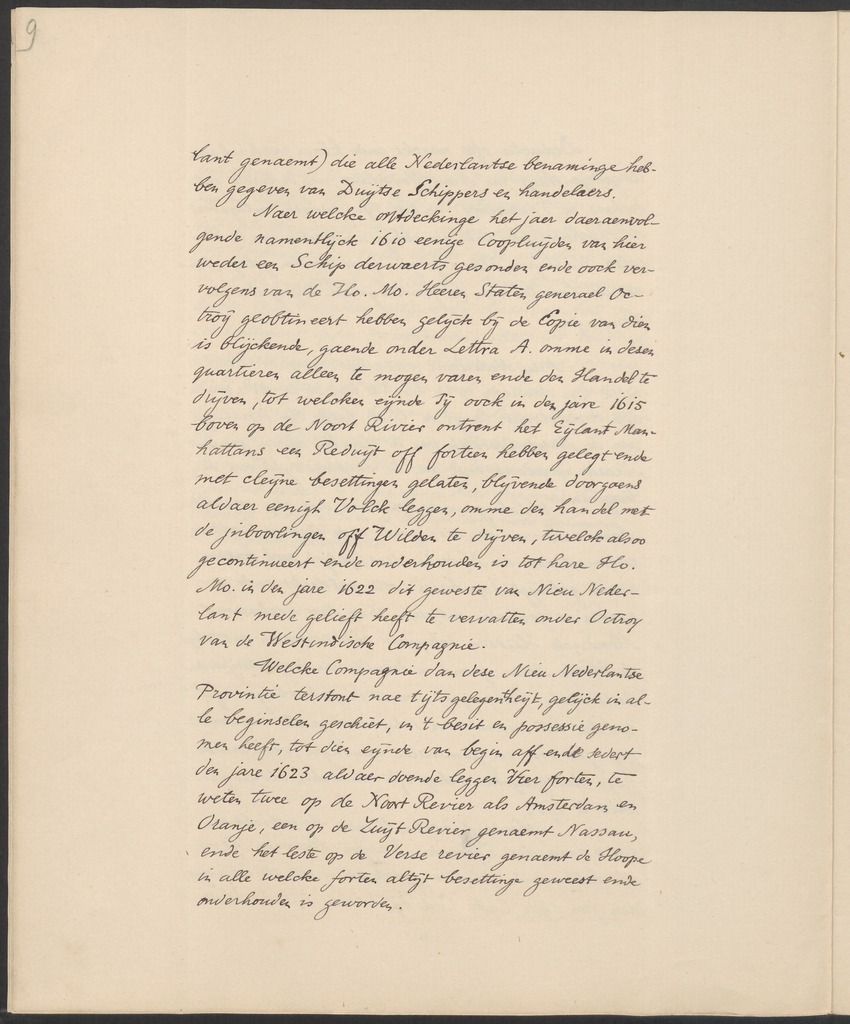 9
lant genaemt) die alle Nederlantse benaminge heb-
ben gegeven van Duÿtse Schippers en handelaers.
Naer welcke ontdeckinge het jaer daeraenvol-
gende namentlÿck 1610 eenige Coopluÿden van hier
weder een Schip derwaerts gesonden ende oock ver-
volgens van de Ho. Mo. Heeren Staten generael Oc-
troÿ geobtineert hebben gelÿck bÿ de Copie van dien
is blÿckende, gaende onder Lettra A. omme in desen
quartieren alleen te mogen varen ende den Handel te
drÿven, tot welcken eÿnde sÿ oock in den jare 1615
boven op de Noort Rivier ontrent het Eÿlant Man-
hattans een Reduÿt off fortien hebben gelegt ende
met cleÿne besettingen gelaten, blÿvende doorgaens
aldaer eenigh Volck leggen, omme den handel met
de jnboorlingen off Wilden te drÿven, twelck alsoo
gecontinueert ende onderhouden is tot hare Ho.
Mo. in den jare 1622 dit geweste van Nieu Neder-
lant mede gelieft heeft te vervatten onder Octroy
van de Westindische Compagnie.
Welcke Compagnie dan dese Nieu Nederlantse
Provintie terstont nae tÿts gelegentheÿt, gelÿck in al-
le beginselen geschiet, in 't besit en possessie geno-
men heeft, tot dien eÿnde van begin aff ende sedert
den jare 1623 aldaer doende leggen Vier forten, te
weten twee op de Noort Revier als Amsterdam en
Oranje, een op de Zuÿt Revier genaemt Nassau,
ende het leste op de Verse revier genaemt de Hoope
in alle welcke forten altÿt besettinge geweest ende
onderhouden is geworden.